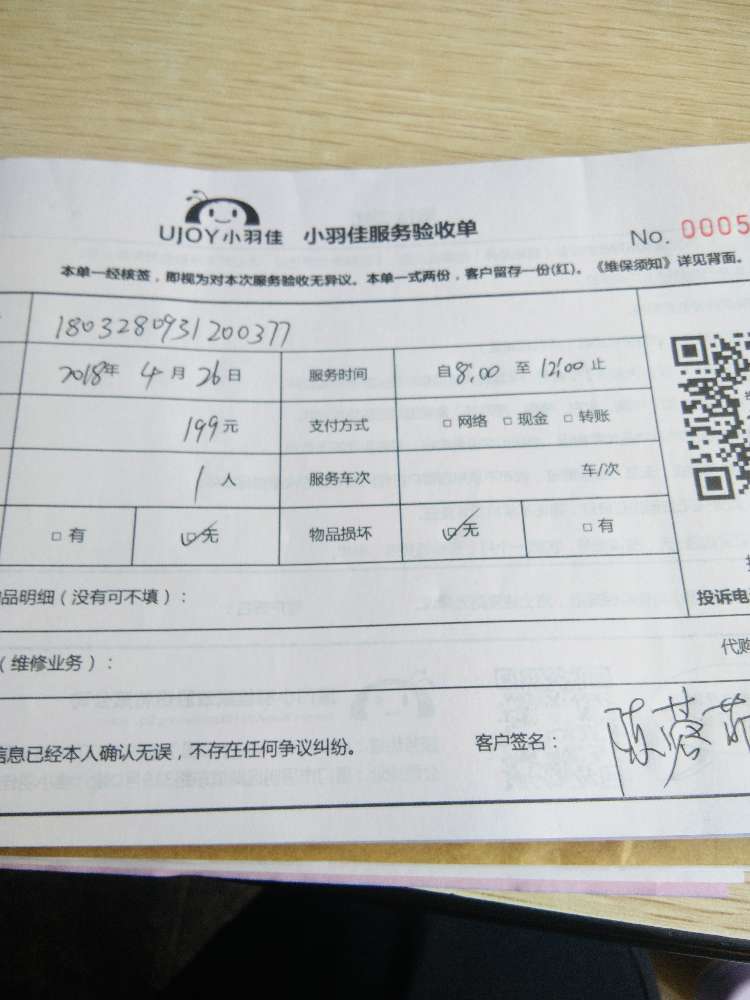 UJOY小羽佳 小羽佳服务验收单 No. 0005
本单一经核签,即视为对本次服务验收无异议。本单一式两份,客户留存一份(红)。《维保须知》详见背面。
1803280931200377
2018年 4月 26日 服务时间 自8:00 至 12:00 止
199元 支付方式 □ 网络 □ 现金 □ 转账
1人 服务车次 车/次
□ 有 □ 无 物品损坏 □ 无 □ 有
品明细(没有可不填):
投诉电
(维修业务):
代购
信息已经本人确认无误,不存在任何争议纠纷。 客户签名: